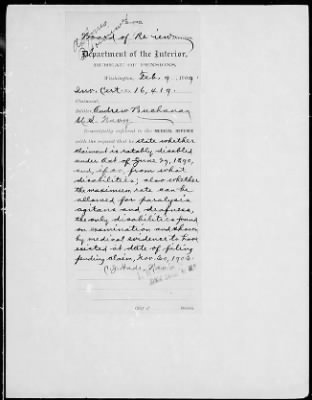 Board of Review
Department of the Interior,
BUREAU OF PENSIONS,
Washington, Feb. 9, 1909
Inv. Cert. 16,419.
Claimant
Soldier Andrew Buchanan
U.S. Navy
Respectfully referred to the MEDICAL REFEREE
with the request that he state whether
claimant is ratably disabled
under Act of June 27, 1890,
and, if so, from what
disabilities; also whether
the maximum rate can be
allowed for paralysis
agitans and deafness,
the only disabilities found
on examination and shown
by medical evidence to have
existed at date of filing
pending claim, Nov. 30, 1903.
Chief of Division.